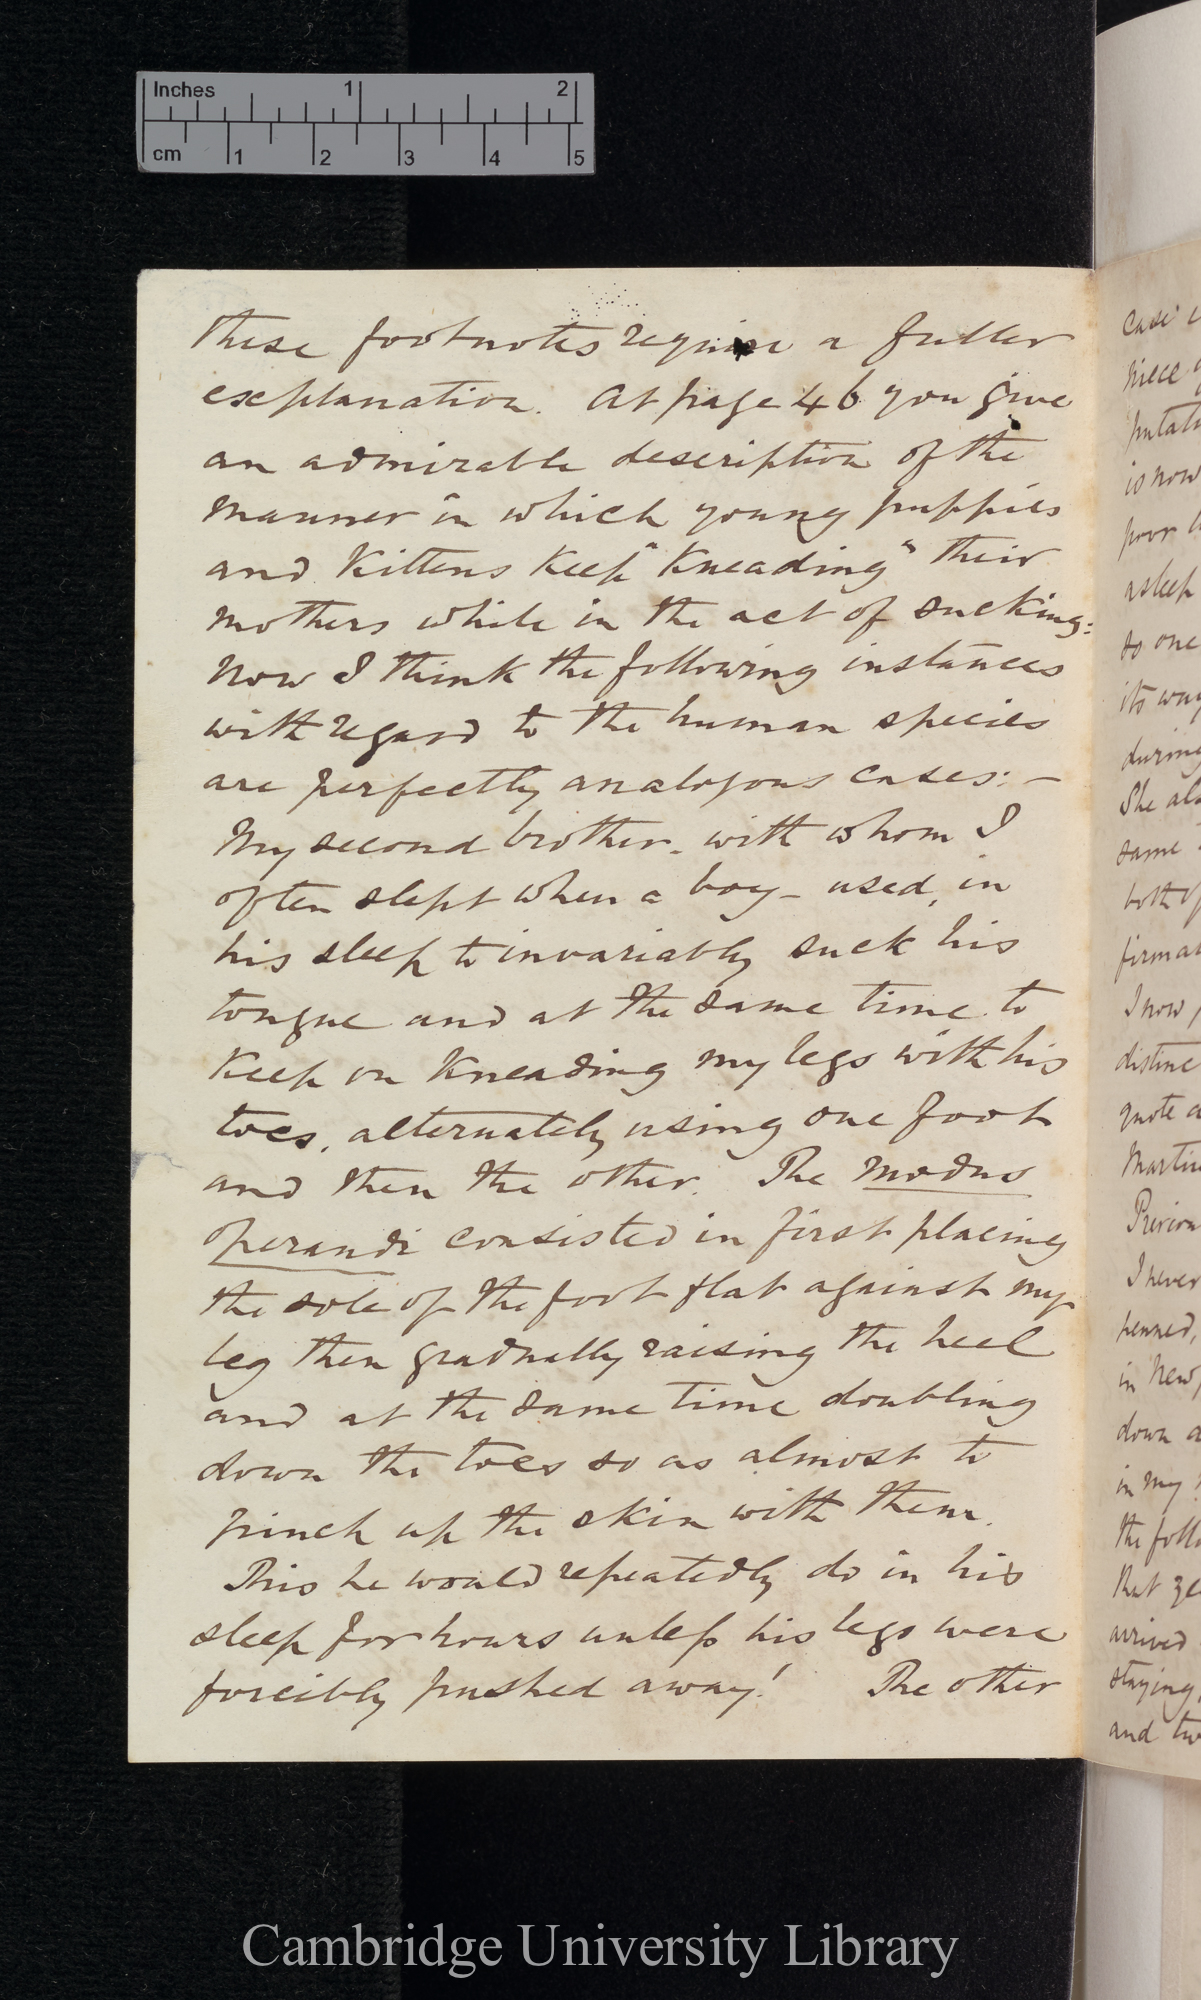 Inches 1 2
cm 1 2 3 4 5
These footnotes require a fuller
explanation. At page 46 you give
an admirable description of the
manner in which young puppies
and Kittens Keep "Kneading" their
mothers while in the act of sucking:
Now I think the following instances
with regard to the human species
are perfectly analogous cases: —
My second brother - with whom I
often slept when a boy - used, in
his sleep to invariably suck his
tongue and at the same time to
Keep on Kneading my legs with his
toes, alternately using one foot
and then the other. The modus
operandi consisted in first placing
the sole of the foot flat against my
leg then gradually raising the heel
and at the same time doubling
down the toes so as almost to
pinch up the skin with them.
This he would repeatedly do in his
sleep for hours unless his legs were
forcibly pushed away! The other
case
piece
is now
poor
asleep
to one
its way
during
She
same
both of
I now
quote
Martin
I never
penned,
in New
down
in my
the
that
arrived
staying,
and
Cambridge University Library